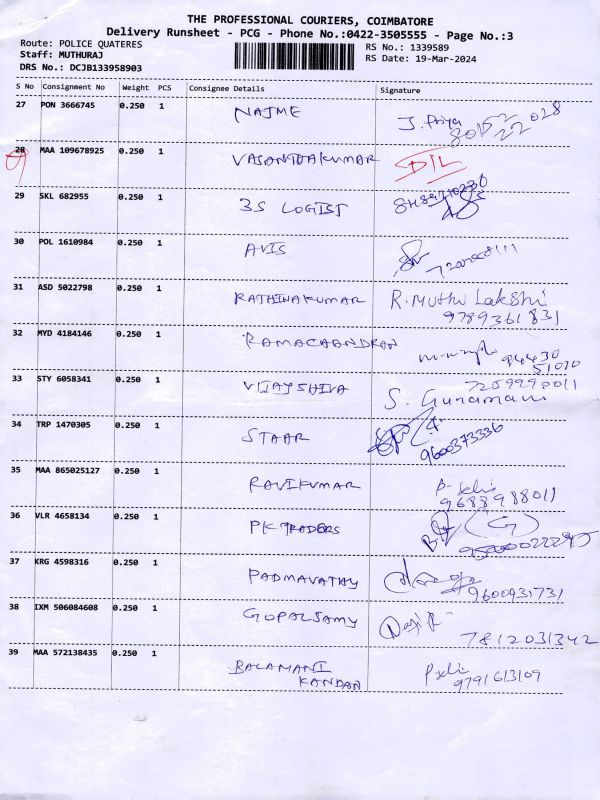 THE PROFESSIONAL COURIERS, COIMBATORE
Delivery Runsheet - PCG - Phone No.:0422-3505555 - Page No.:3
Route: POLICE QUATERES
RS No.: 1339589
Staff: MUTHURAJ
RS Date: 19-Mar-2024
DRS No.: DCJB133958903
S No Consignment No Weight PCS Consignee Details Signature
27 PON 3666745 0.250 1 NAJME J. Priya
28 MAA 109678925 0.250 1 VASANTHAKUMAR D/L
29 SKL 682955 0.250 1 3S LOGIST
30 POL 1610984 0.250 1 AVIS
31 ASD 5022798 0.250 1 RATHINAKUMAR R. Muthu Lakshi
9789361831
32 MYD 4184146 0.250 1 RAMACAANDRAN 94430
51070
33 STY 6058341 0.250 1 VIJAYSHIVA 7259990011
S. Gunamani
34 TRP 1470305 0.250 1 STAAR
9600373336
35 MAA 865025127 0.250 1 RAVIKUMAR
9688988011
36 VLR 4658134 0.250 1 PK TRADERS
37 KRG 4598316 0.250 1 PADMAVATHY
9600931731
38 IXM 506084608 0.250 1 GOPALSAMY
7812031342
39 MAA 572138435 0.250 1 BALAMANI
KANDAN
9791613109